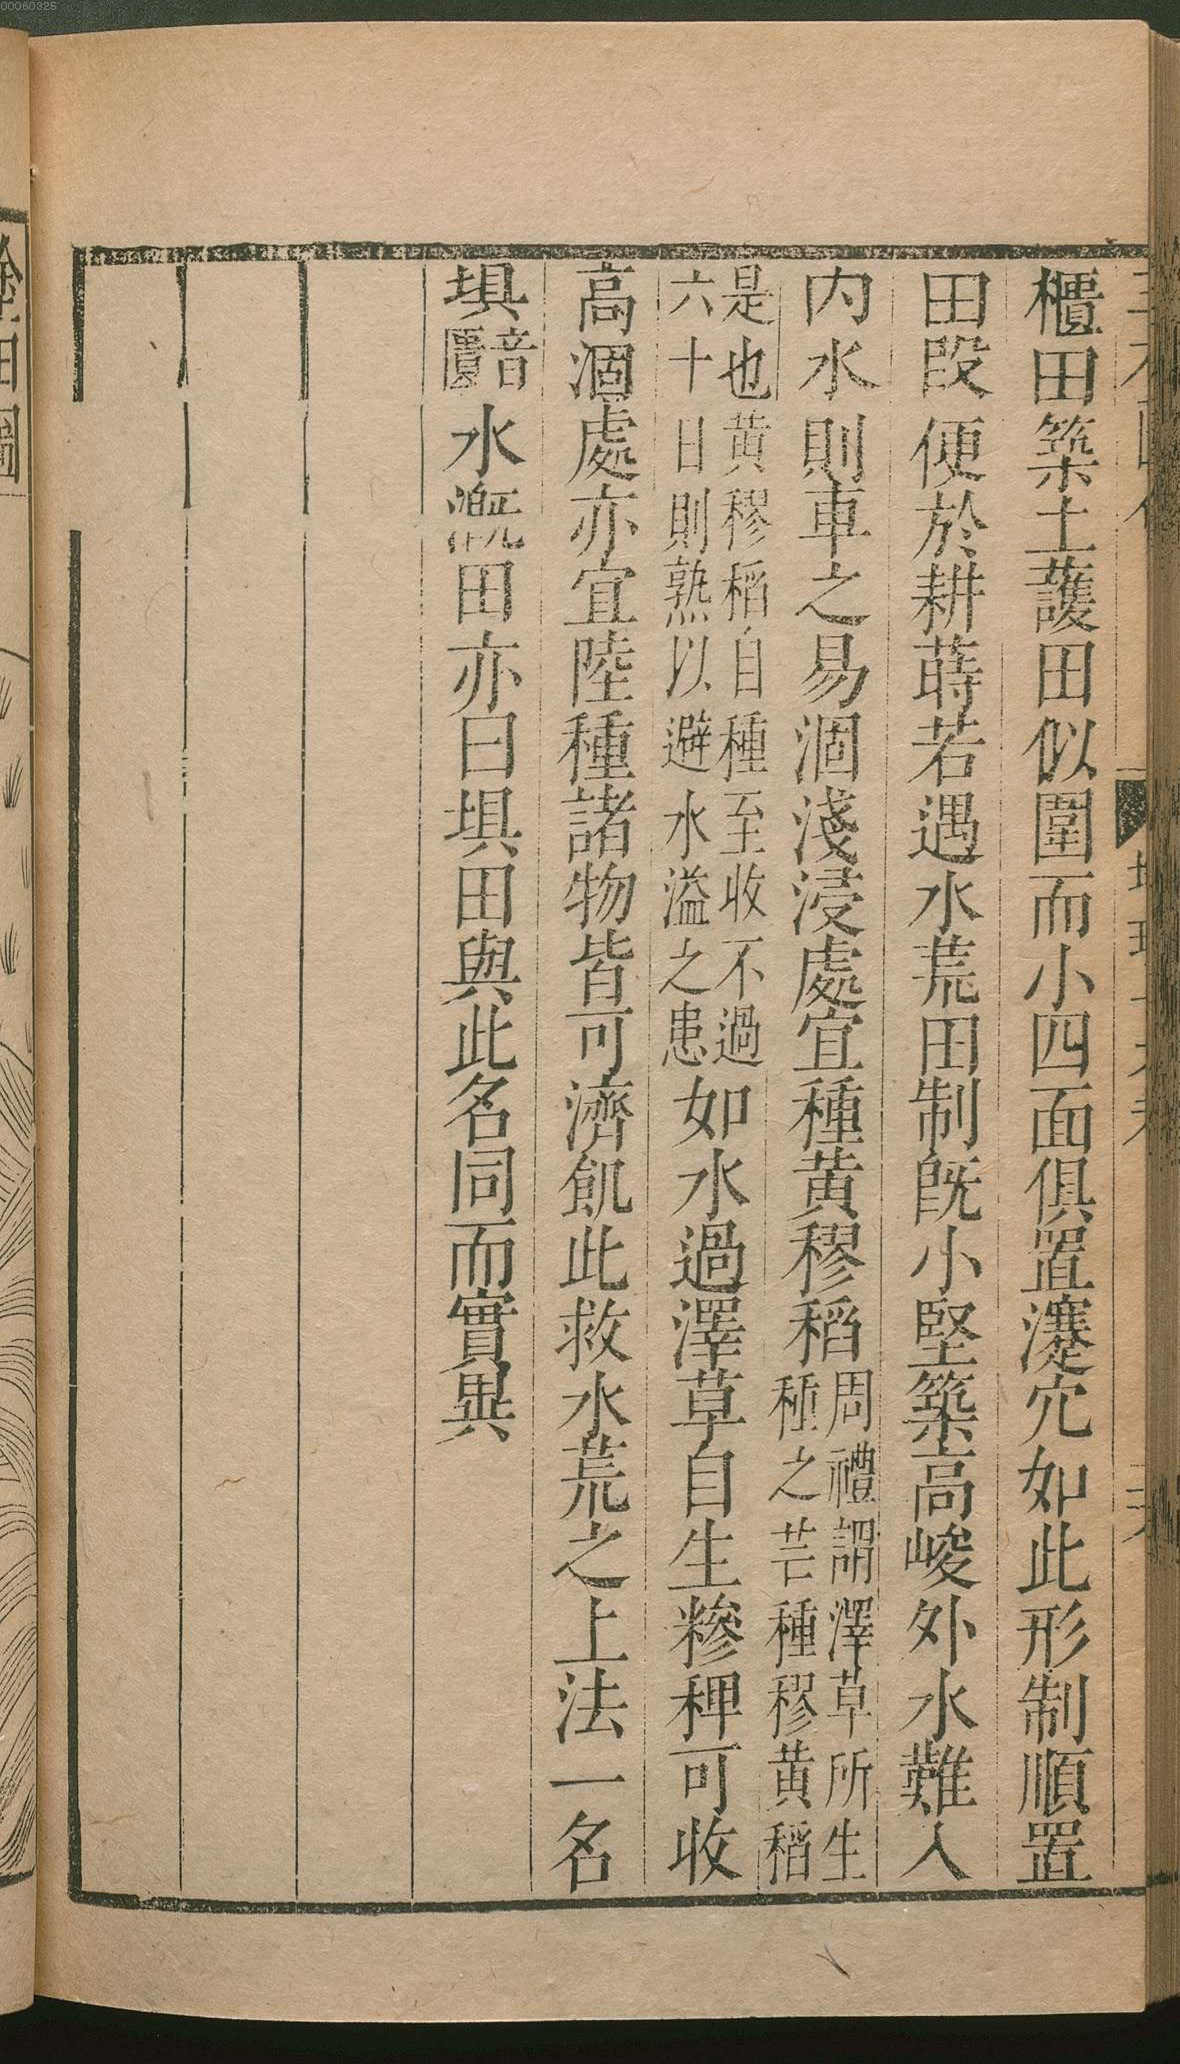 櫃田築土護田似圍而小四面俱置瀽穴如此形制順置
田段便於耕蒔若遇水荒田制旣小堅築高峻外水難入
内水則車之易涸淺浸處宜種黄穋稻周禮謂澤草所生種之芒種穋黄稻
是也黄穋稻自種至收不過六十日則熟以避水溢之患如水過澤草自生糝稗可收
高涸處亦宜陸種諸物皆可濟飢此救水荒之上法一名
埧音匱水漑田亦曰埧田與此名同而實異
00060325